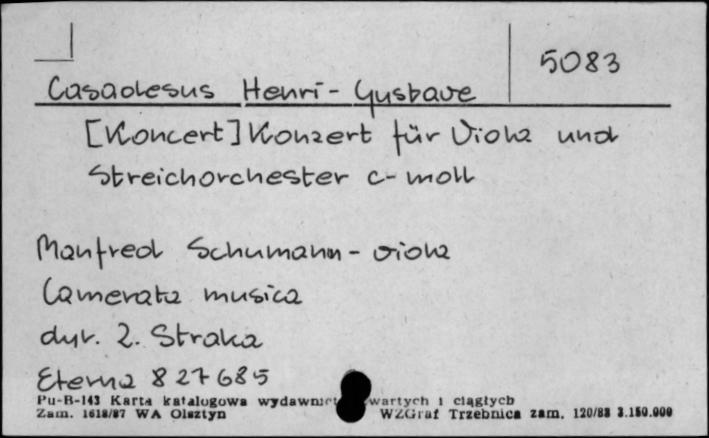 5083
Casadesus Henri-Gustave
[Koncert] Konzert für Viola und
Streichorchester c-moll
Manfred Schumann - viola
Camerata musica
dyr. 2. Straka
Eterna 827685
Pu-B-143 Karta katalogowa wydawnict wartych i ciągłych
Zam. 1618/87 WA Olsztyn WZGraf Trzebnica zam. 120/88 3.150.000